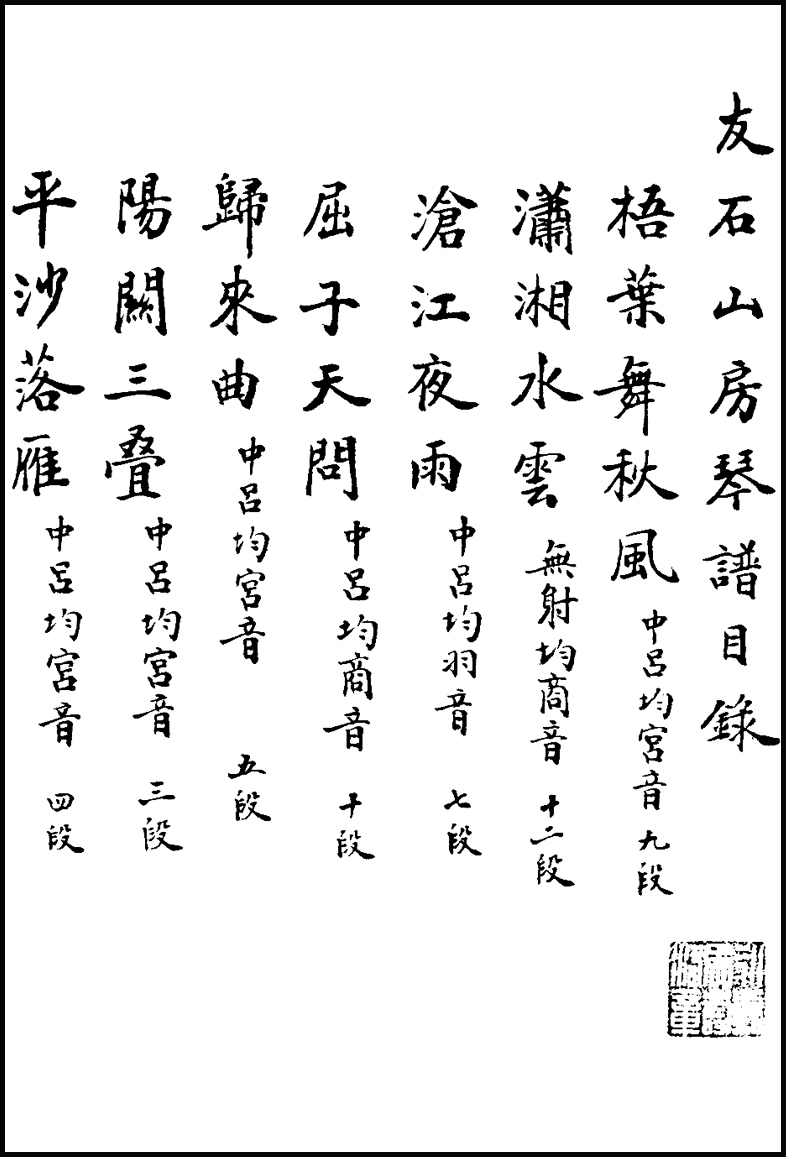 友石山房琴譜目錄
梧葉舞秋風 中呂均宮音 九段
瀟湘水雲 無射均商音 十二段
滄江夜雨 中呂均羽音 七段
屈子天問 中呂均商音 十段
歸來曲 中呂均宮音 五段
陽關三疊 中呂均宮音 三段
平沙落雁 中呂均宮音 四段